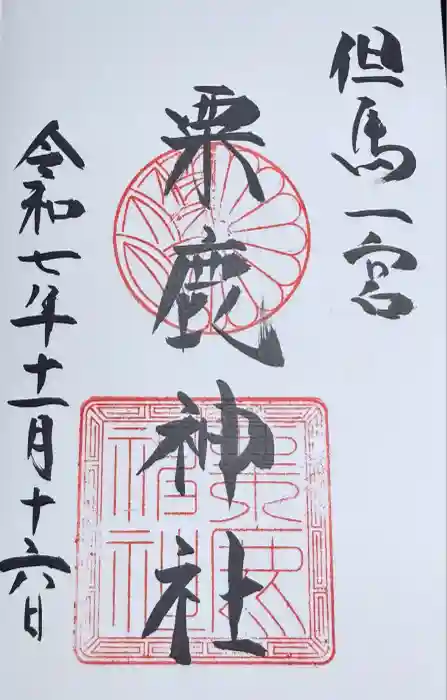 但馬一宮
粟鹿神社
令和七年十一月十六日
粟鹿
神社